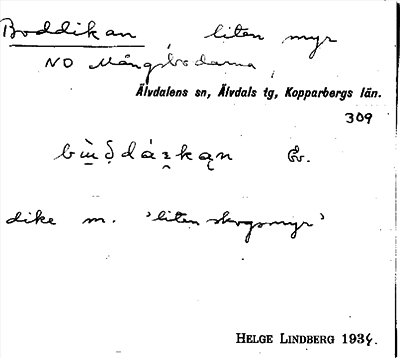 Boddikan, liten myr
NO Mångsbodarna,
Älvdalens sn, Älvdals tg, Kopparbergs län.
309
Äv.
dike m. 'liten skogsmyr'
HELGE LINDBERG 1934.